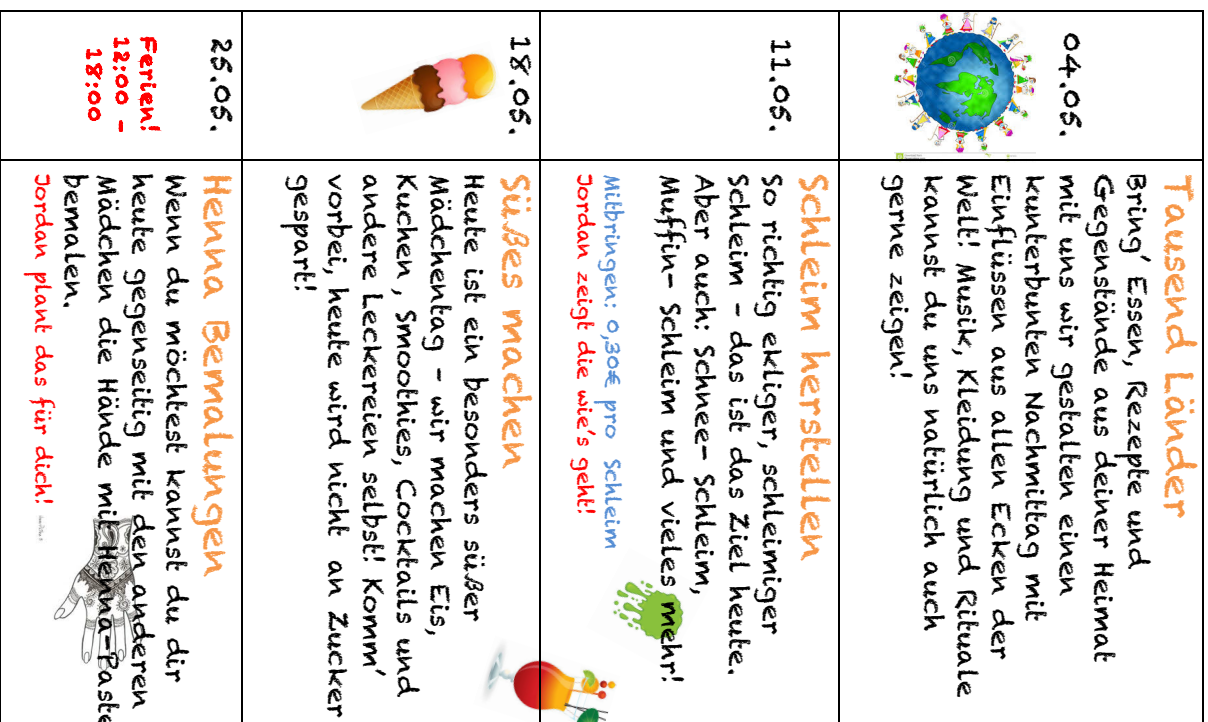 04.05.
Tausend Länder
Bring' Essen, Rezepte und
Gegenstände aus deiner Heimat
mit uns wir gestalten einen
kunterbunten Nachmittag mit
Einflüssen aus allen Ecken der
Welt! Musik, Kleidung und Rituale
kannst du uns natürlich auch
gerne zeigen!
11.05.
Schleim herstellen
So richtig ekliger, schleimiger
Schleim - das ist das Ziel heute.
Aber auch: Schnee- Schleim,
Muffin- Schleim und vieles mehr!
Mitbringen: 0,30€ pro Schleim
Jordan zeigt die wie's geht!
18.05.
Süßes machen
Heute ist ein besonders süßer
Mädchentag - wir machen Eis,
Kuchen , Smoothies, Cocktails und
andere Leckereien selbst! Komm'
vorbei, heute wird nicht an Zucker
gespart!
25.05.
Ferien!
12:00 -
18:00
Henna Bemalungen
Wenn du möchtest kannst du dir
heute gegenseitig mit den anderen
Mädchen die Hände mit Henna-Paste
bemalen.
Jordan plant das für dich!